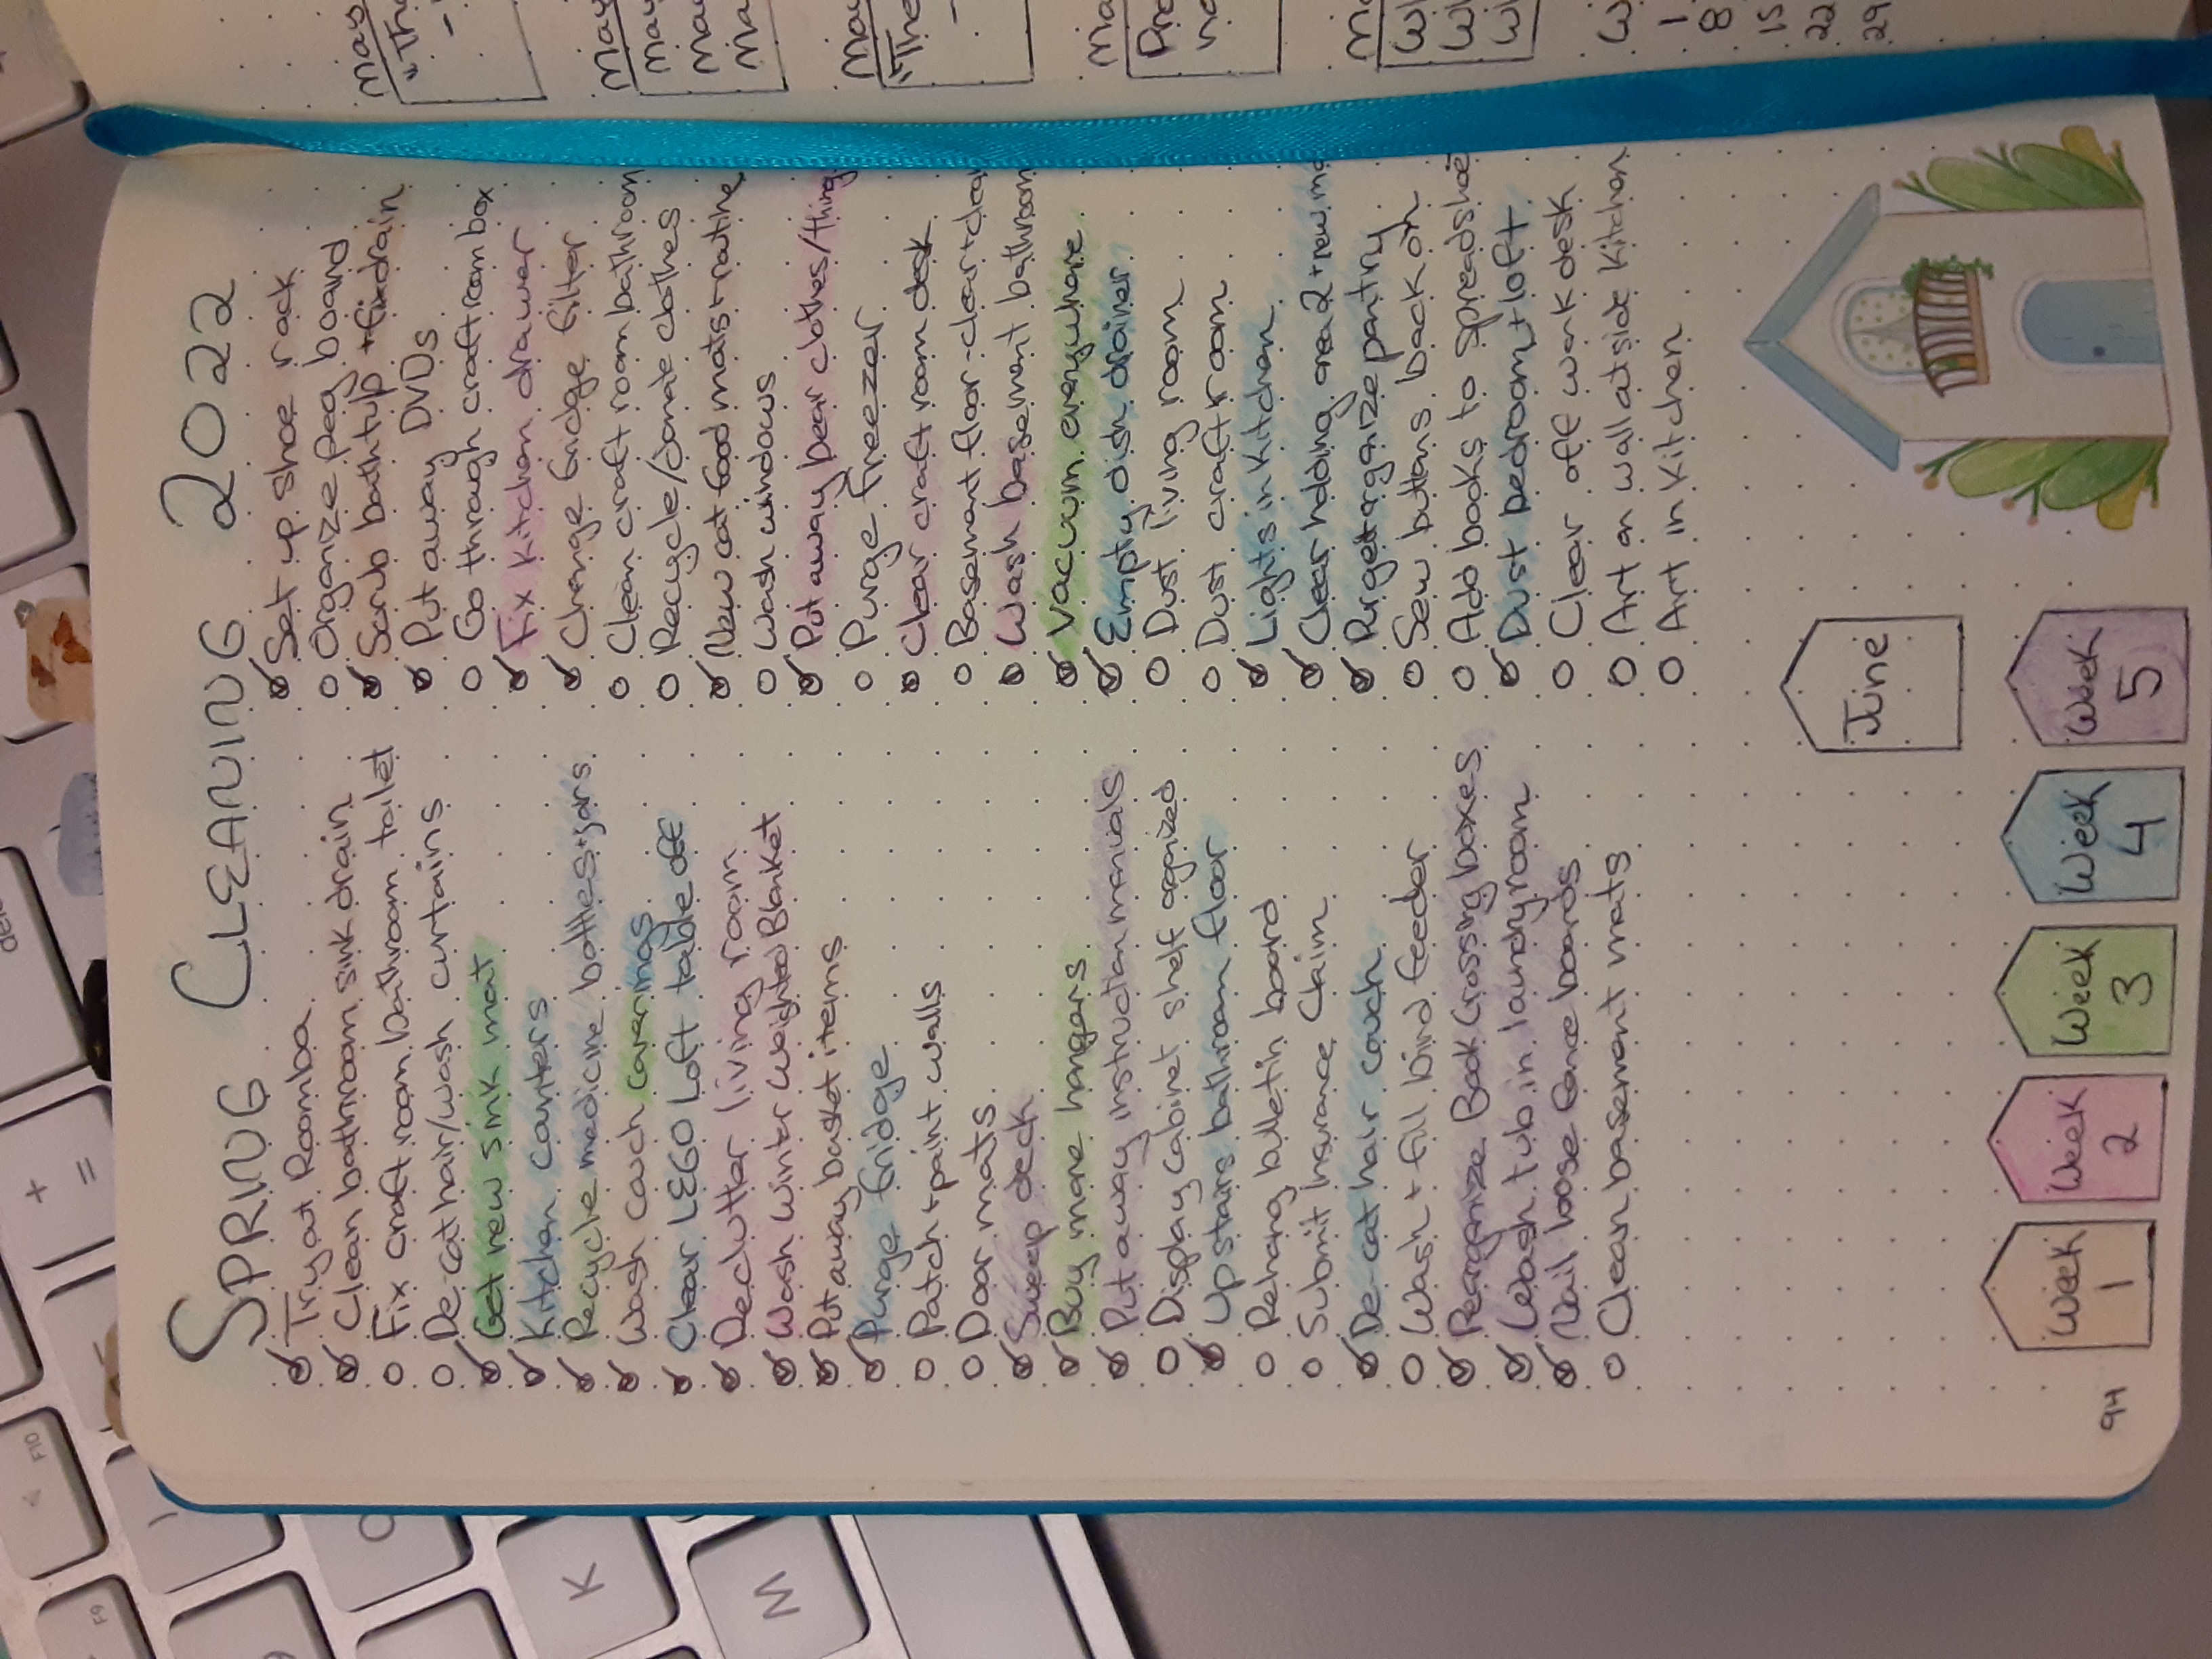 SPRING CLEANING 2022
Try out Roomba
Clean bathroom sink drain
Fix craft room bathroom toilet
De-cat hair/wash curtains
Get new sink mat
Kitchen counters
Recycle medicine bottles+jars
Wash couch coverings
Clear LEGO Loft table off
Declutter living room
Wash Winter Weighted Blanket
Put away basket items
Purge fridge
Patch + paint walls
Door mats
Sweep deck
Buy more hangars
Put away instruction manuals
Display Cabinet shelf organized
Upstairs bathroom floor
Rehang bulletin board
Submit Insurance Claim
De-cat hair couch
Wash + fill bird feeder
Reorganize Book Crossing boxes
Wash tub in laundry room
Nail loose fence boards
Clean basement mats
Set up shoe rack
Organize peg board
Scrub bathtub + fix drain
Put away DVDs
Go through craft room box
Fix kitchen drawer
Change fridge filter
Clean craft room bathroom
Recycle/donate clothes
New cat food mats + routine
Wash windows
Put away bear clothes/thing
Purge freezer
Clear craft room desk
Basement floor-clear+clean
Wash basement bathroom
Vacuum everywhere
Empty dish drainer
Dust living room
Dust craft room
Lights in kitchen
Clear holding area 2 + new
Purge + organize pantry
Sew buttons back on
Add books to spreadshee
Dust bedroom + loft
Clear off work desk
Art on wall outside kitchen
Art in kitchen
June
Week 1
Week 2
Week 3
Week 4
Week 5
94
May
"The
-
May
May
May
Ma
May
"The
-
Ma
Pre
Ma
Wi
Wi
Wi
W
1
8
15
22
29
del
+
=
F10
F9
K
M